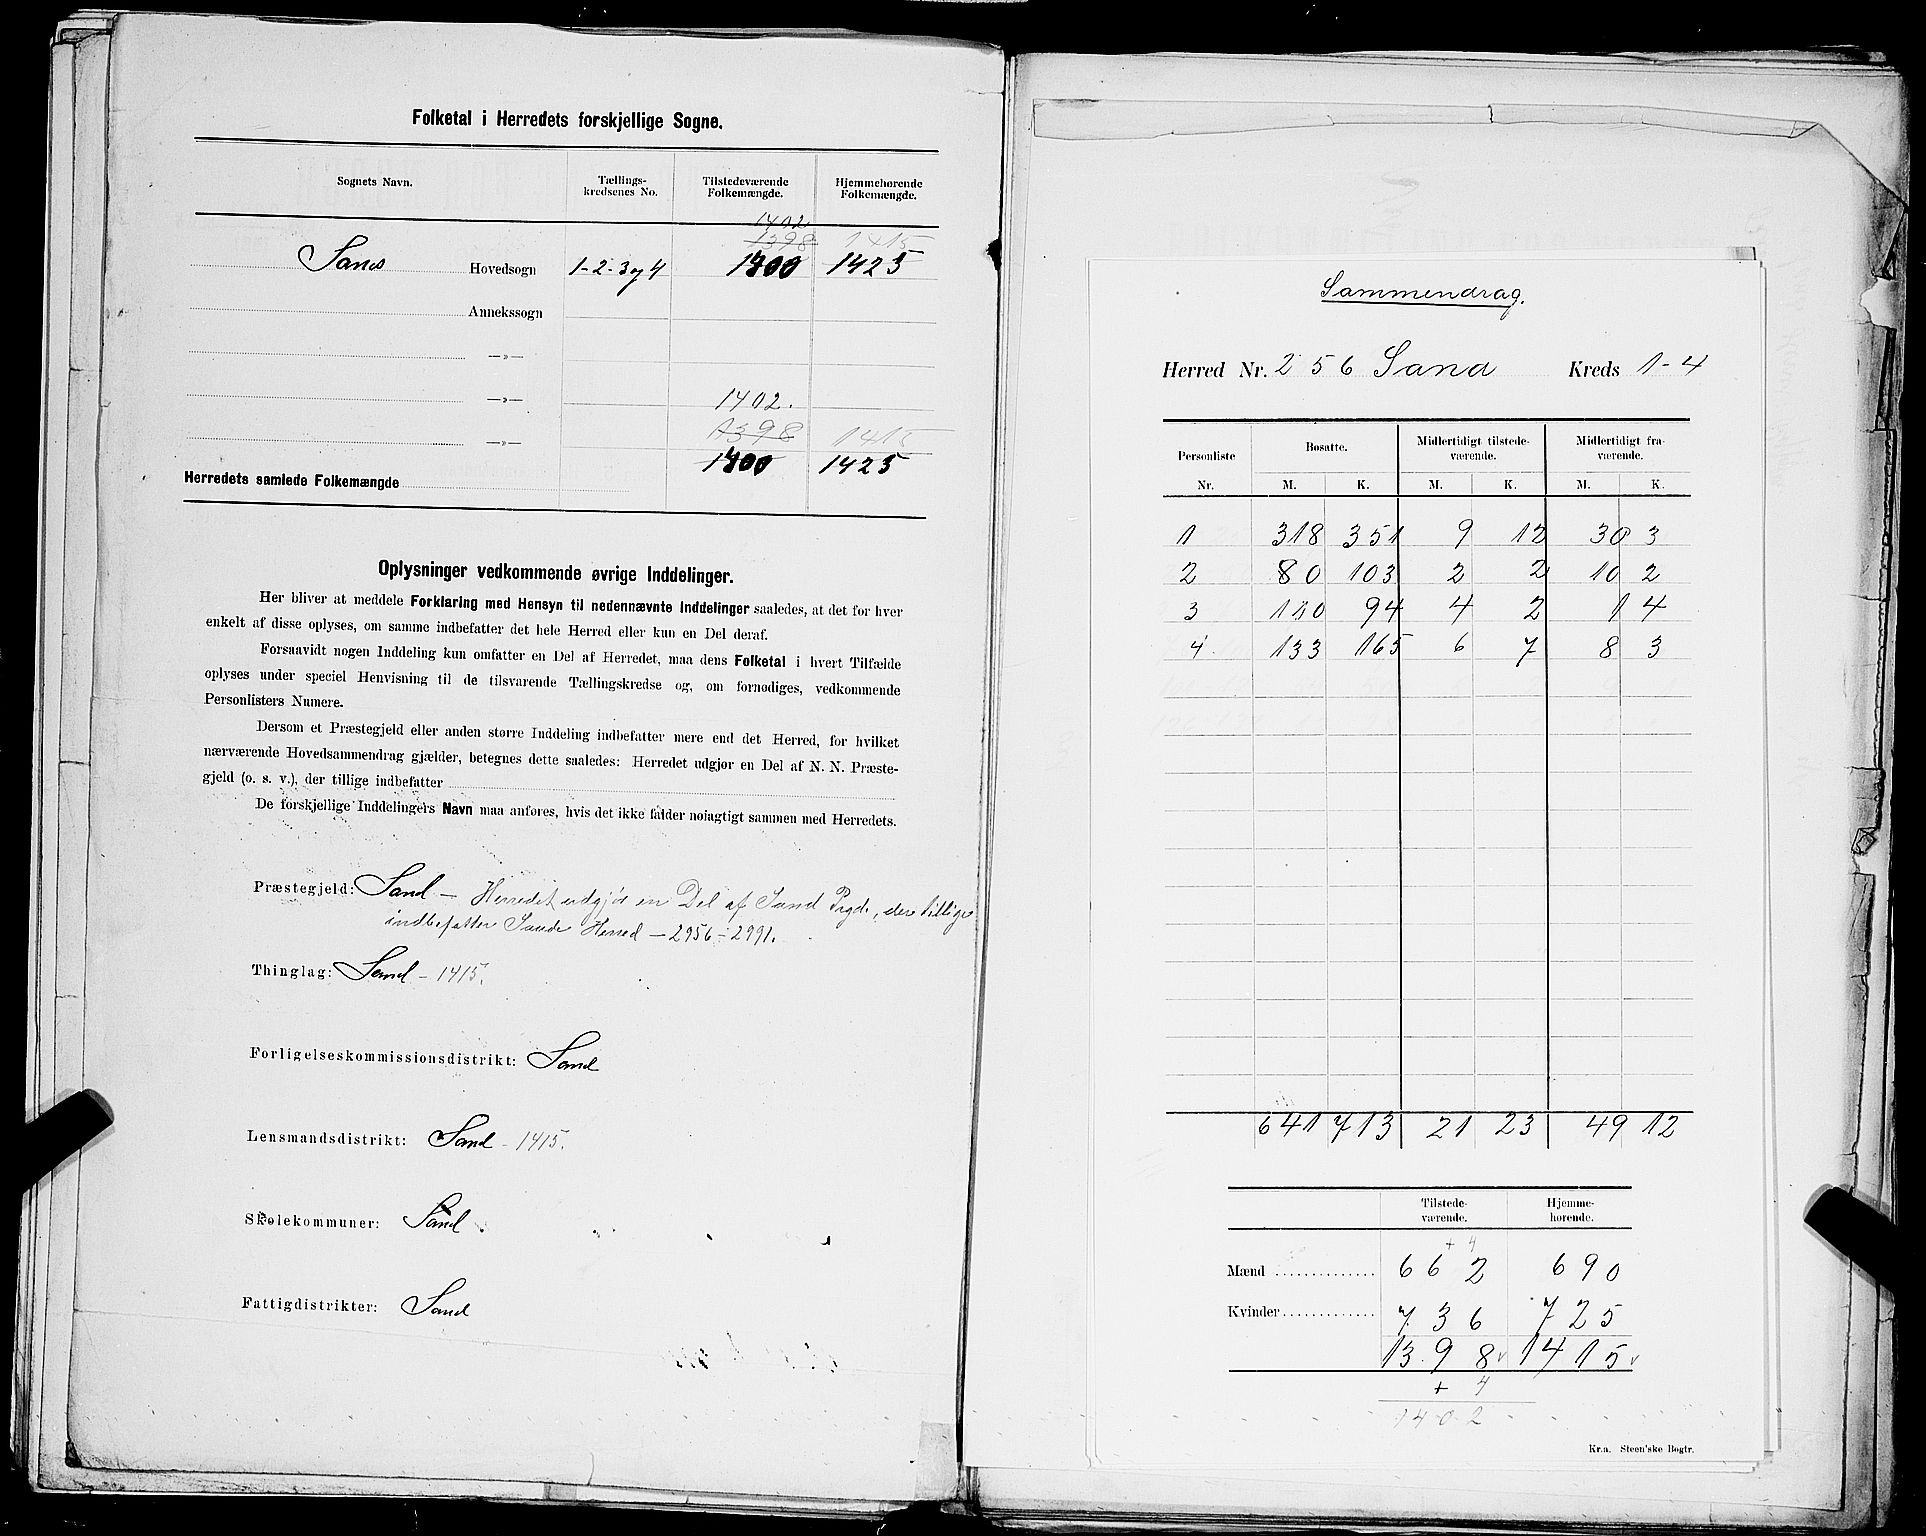 Folketal i Herredets forskjellige Sogne.
Sognets Navn. Tællings- kredsenes No. Tilstedeværende Folkemængde. Hjemmehørende Folkemængde.
1402
1398 1415
Sand Hovedsogn 1-2-3 og 4 1400 1425
Annekssogn
—»—
—»— 1402.
1398 1415
—»—
1400 1425
Herredets samlede Folkemængde
Oplysninger vedkommende øvrige Inddelinger.
Her bliver at meddele Forklaring med Hensyn til nedennævnte Inddelinger saaledes, at det for hver
enkelt af disse oplyses, om samme indbefatter det hele Herred eller kun en Del deraf.
Forsaavidt nogen Inddeling kun omfatter en Del af Herredet, maa dens Folketal i hvert Tilfælde
oplyses under speciel Henvisning til de tilsvarende Tællingskredse og, om fornødiges, vedkommende
Personlisters Numere.
Dersom et Præstegjeld eller anden større Inddeling indbefatter mere end det Herred, for hvilket
nærværende Hovedsammendrag gjælder, betegnes dette saaledes: Herredet udgjør en Del af N. N. Præste-
gjeld (o. s. v.), der tillige indbefatter
De forskjellige Inddelingers Navn maa anføres, hvis det ikke falder nøiagtigt sammen med Herredets.
Præstegjeld: Sand — Herredet udgjör en Del af Sand Prgd., der tillige
indbefatter Sande Herred — 2956 – 2991.
Thinglag: Sand – 1415.
Forligelseskommissionsdistrikt: Sand
Lensmandsdistrikt: Sand – 1415.
Skolekommuner: Sand.
Fattigdistrikter: Sand
Sammendrag.
Herred Nr. 256 Sand Kreds 1-4
Personliste Bosatte. Midlertidigt tilstede- værende. Midlertidigt fra- værende.
Nr. M. K. M. K. M. K.
1 318 351 9 12 30 3
2 80 103 2 2 10 2
3 110 94 4 2 1 4
4. 133 165 6 7 8 3
641 713 21 23 49 12
Tilstede- værende. Hjemme- hørende.
+ 4
Mænd 662 690
Kvinder 736 725
1398 1415
+ 4
1402
Kr.a. Steen'ske Bogtr.